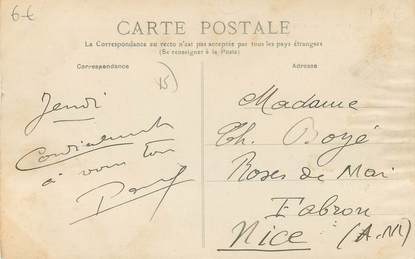 6€
CARTE POSTALE
La Correspondance au recto n'est pas acceptée par tous les pays étrangers
(Se renseigner à la Poste)
Correspondance
Adresse
15)
Jeudi
Cordialement
à vous tous
Madame
Th. Boyé
Roses de Mai
Fabron
Nice (A.M)